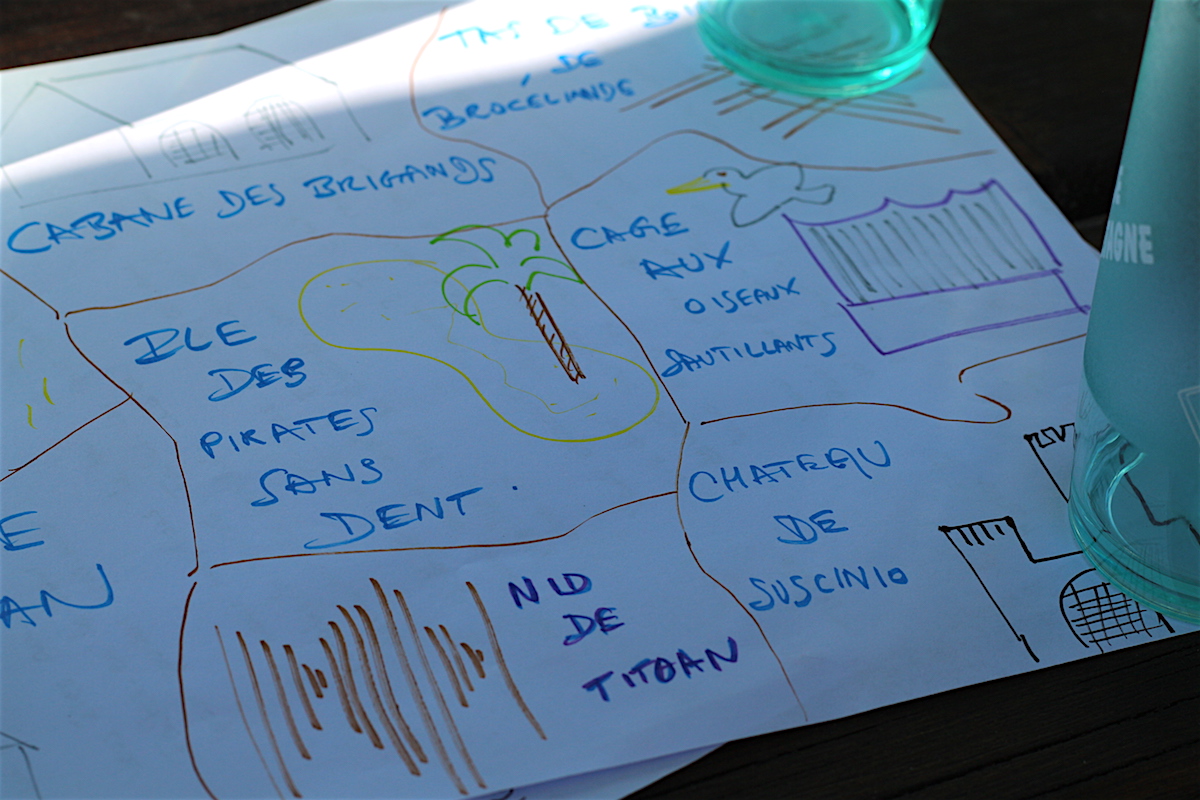 TAS DE
DE
BROCELIANDE
CABANE DES BRIGANDS
CAGE
AUX
OISEAUX
SAUTILLANTS
ILE
DES
PIRATES
SANS
DENT.
CHATEAU
DE
SUSCINIO
NID
DE
TITOAN